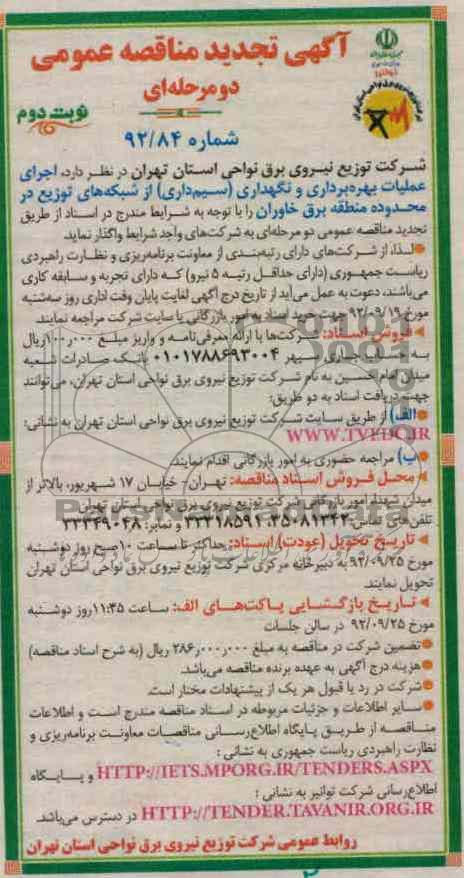 آگهی تجدید مناقصه عمومی
دو مرحله‌ای
نوبت دوم
شماره ۹۲/۸۴
شرکت توزیع نیروی برق نواحی استان تهران در نظر دارد، اجرای
عملیات بهره‌برداری و نگهداری (سیم‌داری) از شبکه‌های توزیع در
محدوده منطقه برق خاوران را با توجه به شرایط مندرج در اسناد از طریق
تجدید مناقصه عمومی دو مرحله‌ای به شرکت‌های واجد شرایط واگذار نماید.
لذا، از شرکت‌های دارای رتبه‌بندی از معاونت برنامه‌ریزی و نظارت راهبردی
ریاست جمهوری (دارای حداقل رتبه ۵ نیرو) که دارای تجربه و سابقه کاری
می‌باشند، دعوت به عمل می‌آید از تاریخ درج آگهی لغایت پایان وقت اداری روز سه‌شنبه
مورخ ۹۲/۰۹/۱۹ جهت خرید اسناد به امور بازرگانی یا سایت شرکت مراجعه نمایند.
فروش اسناد: شرکت‌ها با ارائه معرفی‌نامه و واریز مبلغ ۱۰۰٫۰۰۰ ریال
به جاری سپهر ۰۱۰۱۷۸۸۶۹۳۰۰۴ بانک صادرات شعبه
میدان امام حسین به نام شرکت توزیع نیروی برق نواحی استان تهران، می‌توانند
جهت دریافت اسناد به دو طریق:
الف) از طریق سایت شرکت توزیع نیروی برق نواحی استان تهران به نشانی:
WWW.TVEDC.IR
ب) مراجعه حضوری به امور بازرگانی اقدام نمایند.
محل فروش اسناد مناقصه: تهران - خیابان ۱۷ شهریور، بالاتر از
میدان شهدا، امور بازرگانی شرکت توزیع نیروی برق نواحی استان تهران
تلفن‌های تماس: ۳۵۰۸۱۳۴۲، ۳۳۳۱۸۵۹۱ و نمابر: ۳۳۳۴۹۰۴۸
تاریخ تحویل (عودت) اسناد: حداکثر تا ساعت ۱۰ صبح روز دوشنبه
مورخ ۹۲/۰۹/۲۵ به دبیرخانه مرکزی شرکت توزیع نیروی برق نواحی استان تهران
تحویل نمایند.
تاریخ بازگشایی پاکت‌های الف: ساعت ۱۱:۳۵ روز دوشنبه
مورخ ۹۲/۰۹/۲۵ در سالن جلسات
تضمین شرکت در مناقصه به مبلغ ۲۸۶٫۰۰۰٫۰۰۰ ریال (به شرح اسناد مناقصه)
هزینه درج آگهی به عهده برنده مناقصه می‌باشد.
شرکت در رد یا قبول هر یک از پیشنهادات مختار است.
سایر اطلاعات و جزئیات مربوطه در اسناد مناقصه مندرج است و اطلاعات
مناقصه از طریق پایگاه اطلاع‌رسانی مناقصات معاونت برنامه‌ریزی و
نظارت راهبردی ریاست جمهوری به نشانی:
HTTP://IETS.MPORG.IR/TENDERS.ASPX و پایگاه
اطلاع‌رسانی شرکت توانیر به نشانی:
HTTP://TENDER.TAVANIR.ORG.IR در دسترس می‌باشد.
روابط عمومی شرکت توزیع نیروی برق نواحی استان تهران